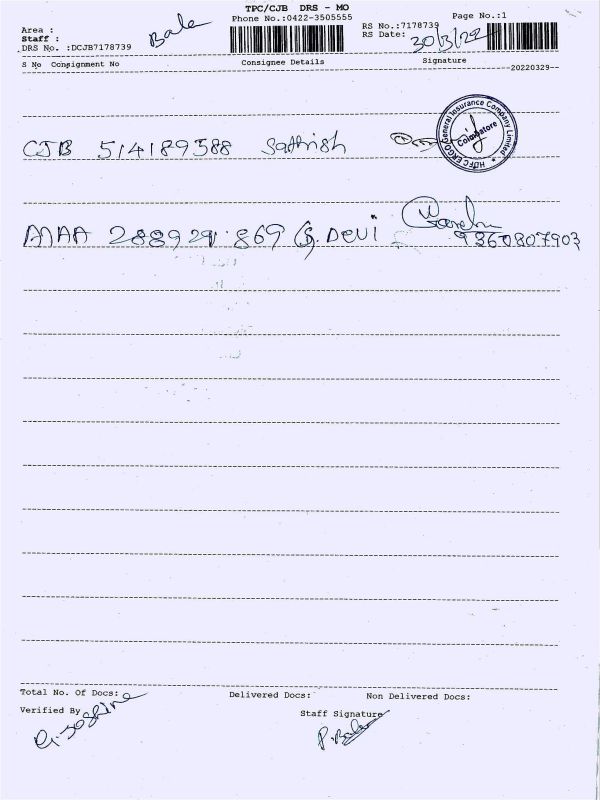 TPC/CJB DRS - MO
Area :
Staff : Bala
DRS No. :DCJB7178739
Phone No.:0422-3505555
RS No.:7178739
RS Date: 30/3/22
Page No.:1
S No Consignment No Consignee Details Signature
--20220329--
CJB 514189588 Sathish
HDFC ERGO General Insurance Company Limited
Coimbatore
MAA 288929 869 G. DEVI
9360807903
Total No. Of Docs: Delivered Docs: Non Delivered Docs:
Verified By Staff Signature
P. Bala